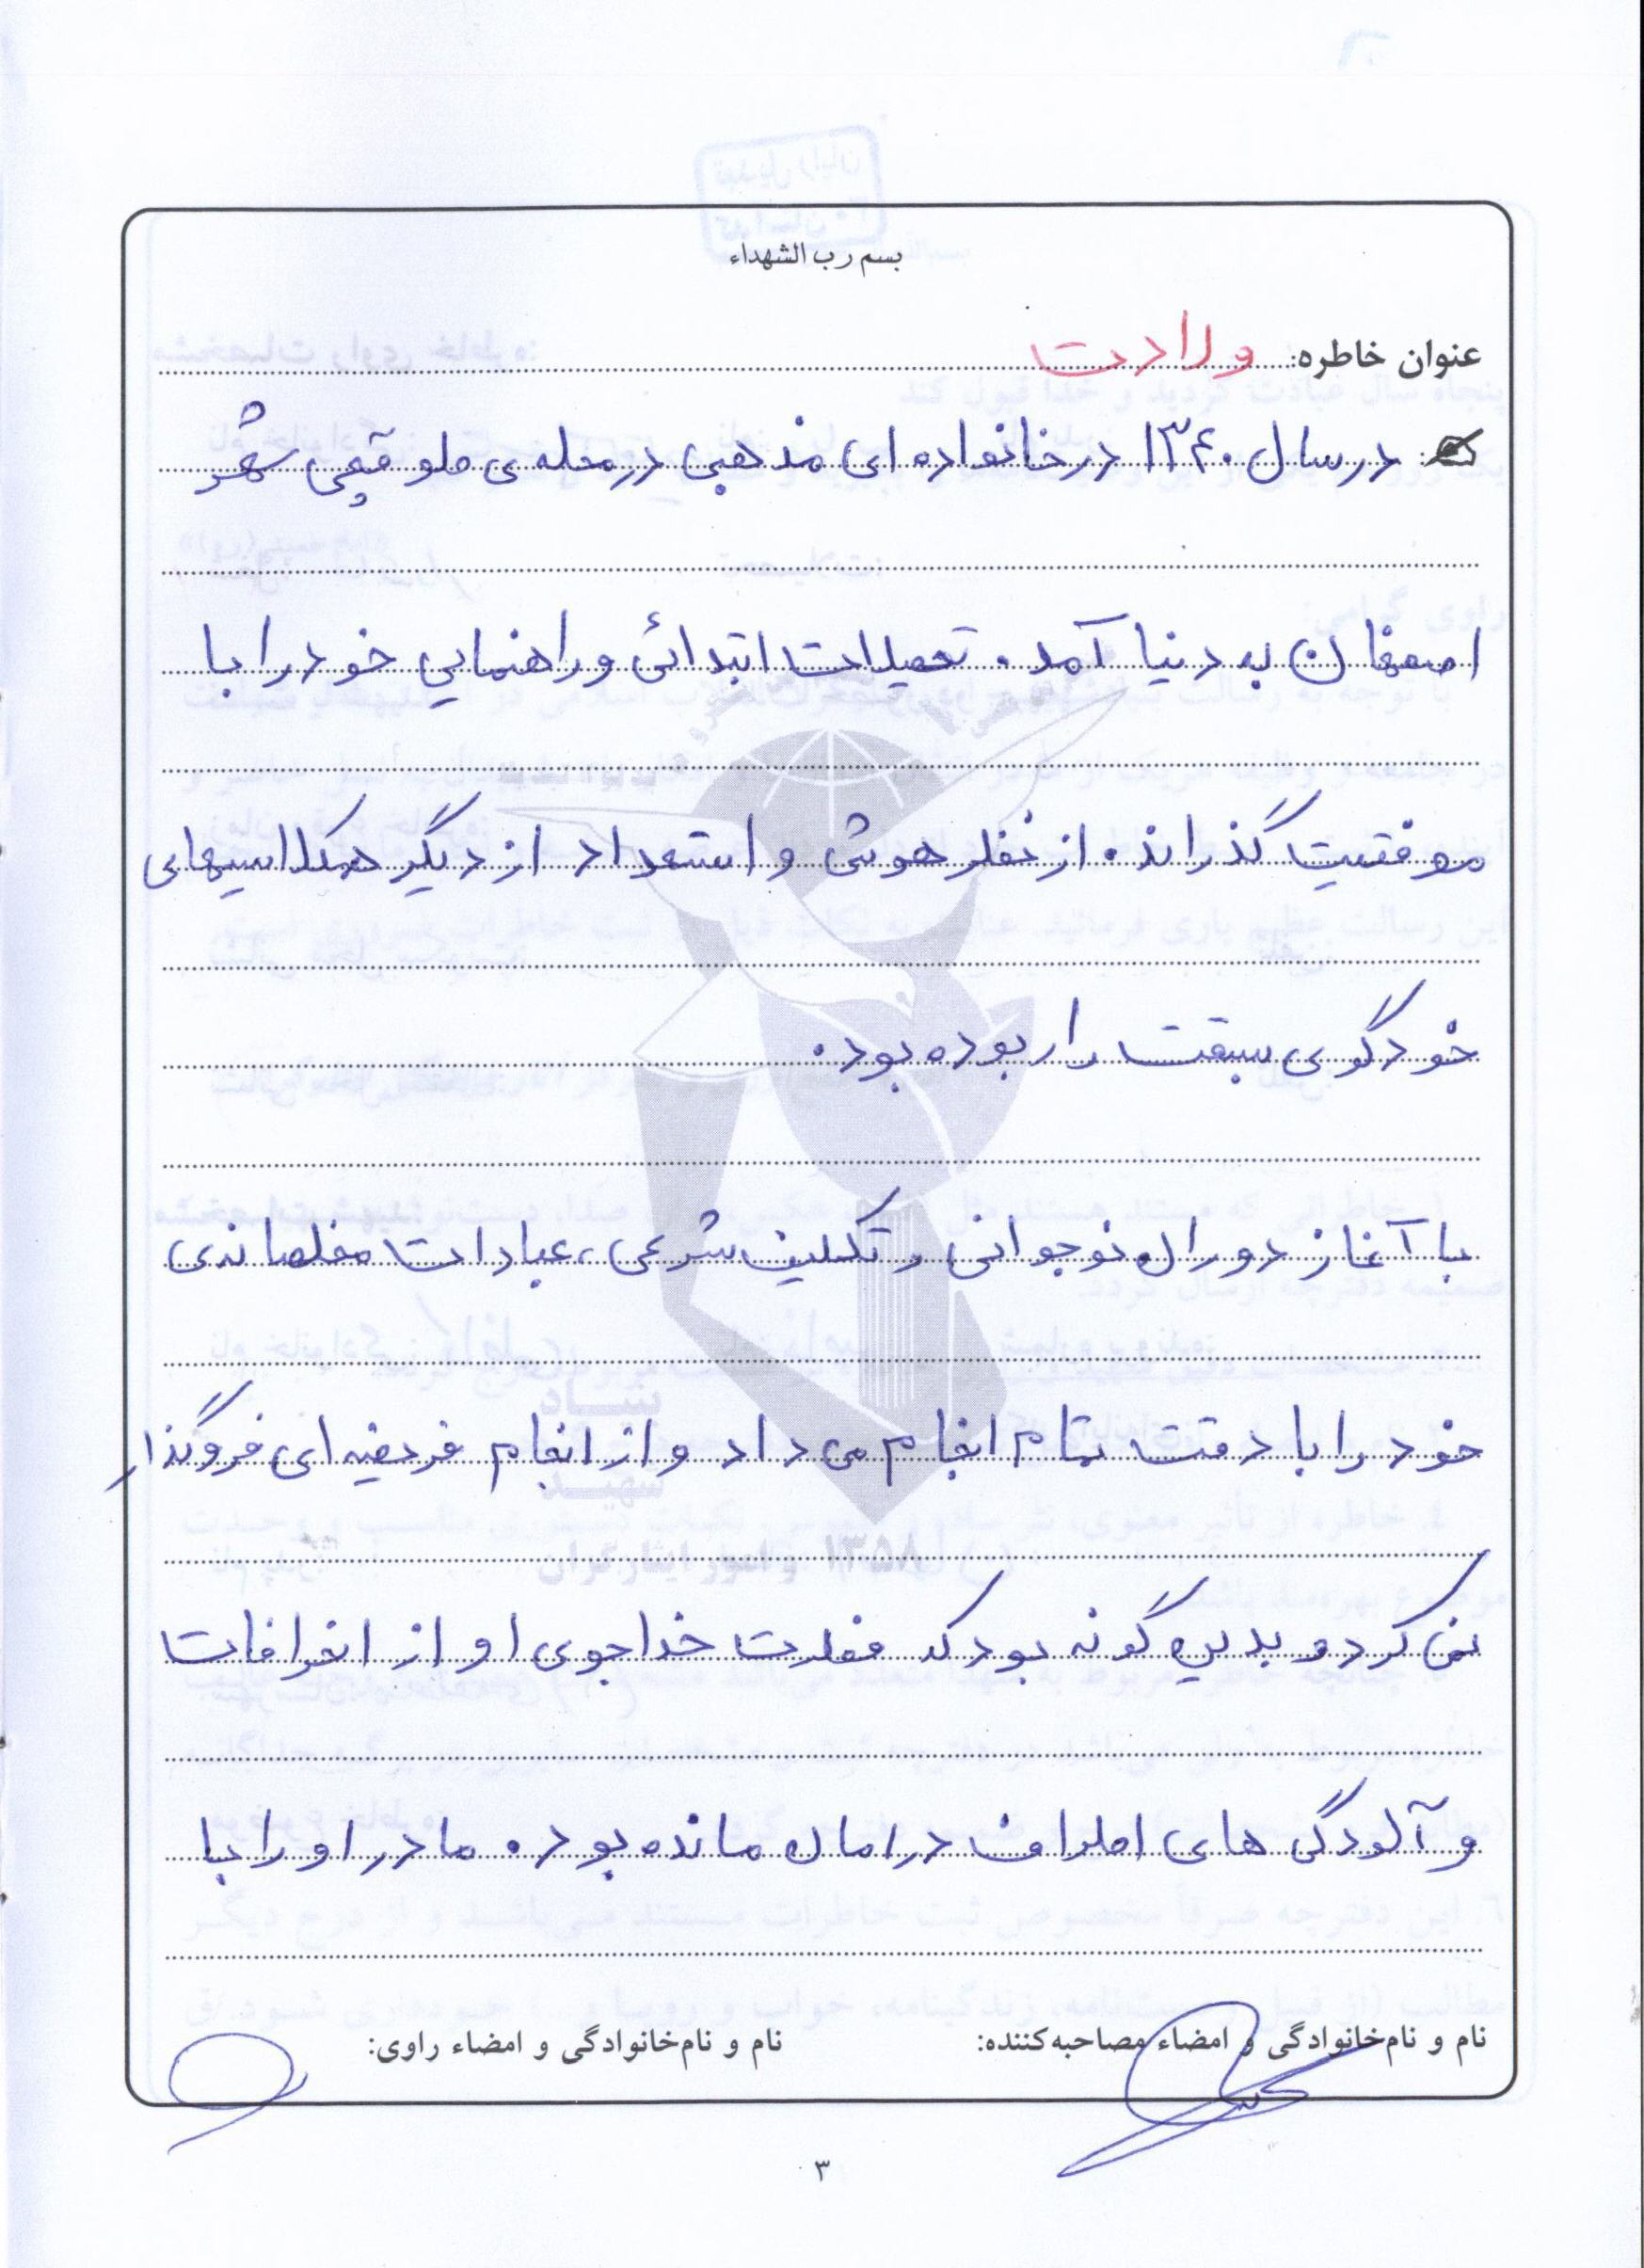 بسم رب الشهداء
عنوان خاطره: ولادت
در سال ۱۳۴۰ در خانواده ای مذهبی در محله ی طوقچی شهر
اصفهان به دنیا آمد. تحصیلات ابتدائی و راهنمایی خود را با
موفقیت گذراند. از نظر هوش و استعداد از دیگر همکلاسیهای
خود گوی سبقت را ربوده بود.
با آغاز دوران نوجوانی و تکلیف شرعی، عبادات مخلصانه ی
خود را با دقت تمام انجام می داد و از انجام فریضه ای فروگذار
نمی کرد و بدین گونه بود که فطرت خداجوی او از انحرافات
و آلودگی های اطراف در امان مانده بود. مادر او را با
نام و نام‌خانوادگی و امضاء مصاحبه‌کننده:
نام و نام‌خانوادگی و امضاء راوی:
۳